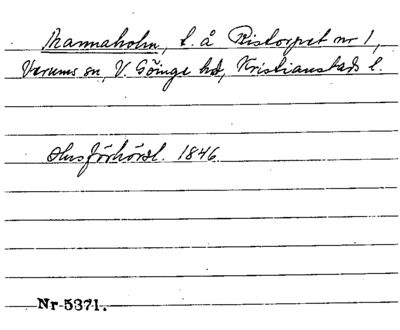 Mannaholm, t. å Ristorpet nr 1,
Verums sn, V. Göinge hd, Kristianstads l.
Husförhörsl. 1846
Nr 5371.